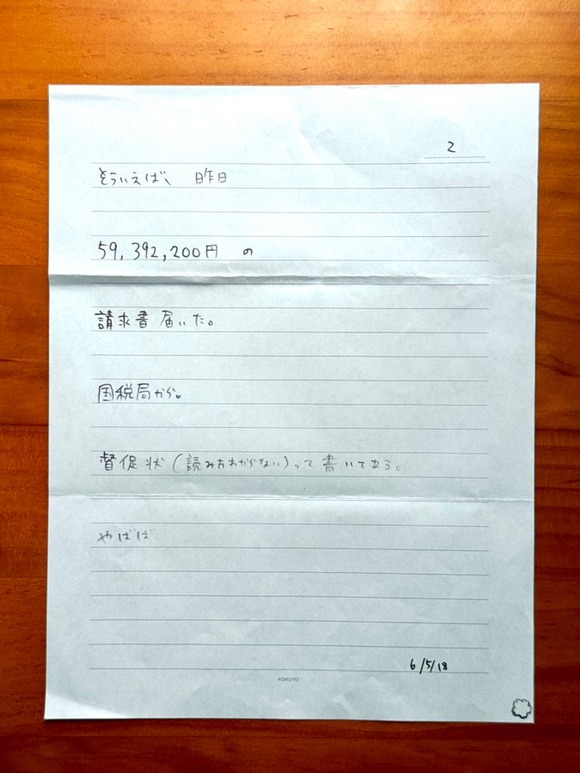 2
そういえば、 昨日
59,392,200円 の
請求書 届いた。
国税局から。
督促状(読み方わからない)って書いてある。
やばば
6/5/18
KOKUYO